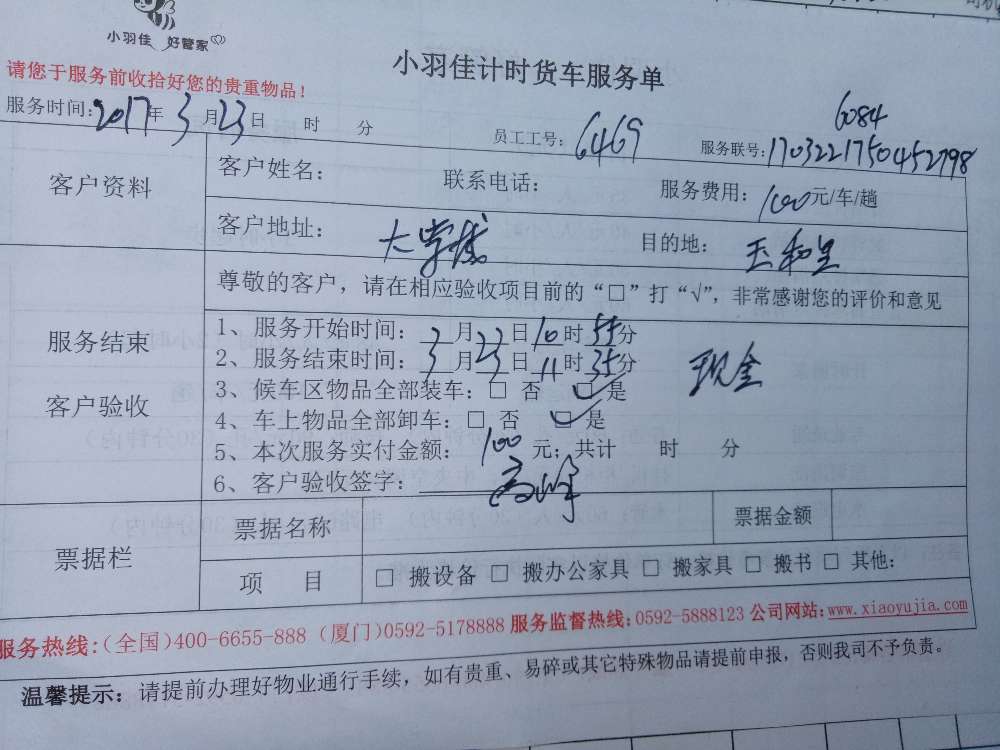 小羽佳 好管家
小羽佳计时货车服务单
请您于服务前收拾好您的贵重物品！
6084
服务时间：2017年3月23日 时 分 员工工号：6469 服务联号：17032217504527​98
客户资料
客户姓名： 联系电话： 服务费用：100元/车/趟
客户地址：大学城 目的地：
尊敬的客户，请在相应验收项目前的“□”打“√”，非常感谢您的评价和意见
服务结束
客户验收
1、服务开始时间：3月23日10时55分
2、服务结束时间：3月23日11时35分
现金
3、候车区物品全部装车：□ 否 ☑ 是
4、车上物品全部卸车：□ 否 ☑ 是
5、本次服务实付金额：100元；共计 时 分
6、客户验收签字：高峰
票据栏
票据名称 票据金额
项 目 □ 搬设备 □ 搬办公家具 □ 搬家具 □ 搬书 □ 其他：
服务热线：（全国）400-6655-888（厦门）0592-5178888 服务监督热线：0592-5888123 公司网站：www.xiaoyujia.com
温馨提示：请提前办理好物业通行手续，如有贵重、易碎或其它特殊物品请提前申报，否则我司不予负责。